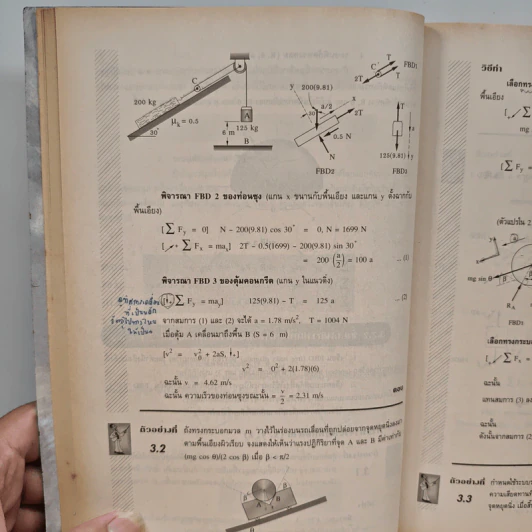 200 kg
C
μk = 0.5
30°
A
125 kg
6 m
B
y
200(9.81)
30°
a/2
x
2T
0.5 N
N
FBD2
T
C
2T
T
FBD1
T
125(9.81)
y
FBD3
พิจารณา FBD 2 ของท่อนซุง (แกน x ขนานกับพื้นเอียง และแกน y ตั้งฉากกับ
พื้นเอียง)
[∑ Fy = 0] N - 200(9.81) cos 30° = 0, N = 1699 N
[↗+ ∑ Fx = max] 2T - 0.5(1699) - 200(9.81) sin 30°
= 200 (a/2) = 100 a ... (1)
พิจารณา FBD 3 ของตุ้มคอนกรีต (แกน y ในแนวดิ่ง)
[↓+ ∑ Fy = may] 125(9.81) - T = 125 a ... (2)
จากสมการ (1) และ (2) จะได้ a = 1.78 m/s², T = 1004 N
เมื่อตุ้ม A เคลื่อนมาถึงพื้น B (S = 6 m)
[v² = v₀² + 2aS, ↓+]
v² = 0² + 2(1.78)(6)
ฉะนั้น v = 4.62 m/s
ฉะนั้น ความเร็วของท่อนซุงขณะนั้น = v/2 = 2.31 m/s
ตอบ
ตัวอย่างที่ 3.2
ถังทรงกระบอกมวล m วางไว้ในร่องบนรถเลื่อนที่ถูกปล่อยจากจุดหยุดนิ่งลงมา
ตามพื้นเอียงผิวเรียบ จงแสดงให้เห็นว่าแรงปฏิกิริยาที่จุด A และ B มีค่าเท่ากับ
(mg cos θ)/(2 cos β) เมื่อ β < π/2
β
β
A
B
วิธีทำ
เลือกทรง
พื้นเอียง
mg
[∑ Fy =
(ตัวแปรใน
mg sin θ
FBD1
เลือกทรงกระบอก
ฉะนั้น
แทนสมการ (3)
ฉะนั้น
ดังนั้นจากสมการ (2
ตัวอย่างที่ 3.3
กำหนดใช้ระบบ
ความเสียดทาน
จุดหยุดนิ่ง